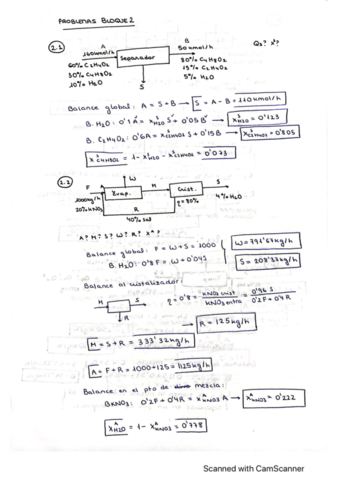 PROBLEMAS BLOQUE 2
2.1
A
160kmol/h
60% C2H4O2
30% C4H8O2
10% H2O
Separador
B
50kmol/h
80% C4H8O2
15% C2H4O2
5% H2O
S
Qs? xs?
Balance global: A = S + B → S = A - B = 110 kmol/h
B. H2O: 0'1A = x^S_H2O S + 0'05B → x^S_H2O = 0'123
B. C2H4O2: 0'6A = x^S_C2H4O2 S + 0'15B → x^S_C2H4O2 = 0'805
x^S_C4H8O2 = 1 - x^S_H2O - x^S_C2H4O2 = 0'073
2.2
F
1000kg/h
20% KNO3
A
Evap.
W
M
Crist.
η = 80%
S
4% H2O
R
40% sal
A? M? S? W? R? x^A?
Balance global: F = W + S = 1000
B. H2O: 0'8F = W + 0'04S
W = 791'67kg/h
S = 208'33kg/h
Balance al cristalizador:
M
S
R
η = 0'8 = KNO3 crist / KNO3 entra = 0'96 S / 0'2F + 0'4R
→ R = 125kg/h
M = S + R = 333'32 kg/h
A = F + R = 1000 + 125 = 1125kg/h
Balance en el pto de mezcla:
BKNO3: 0'2F + 0'4R = x^A_KNO3 A → x^A_KNO3 = 0'222
x^A_H2O = 1 - x^A_KNO3 = 0'778
Scanned with CamScanner